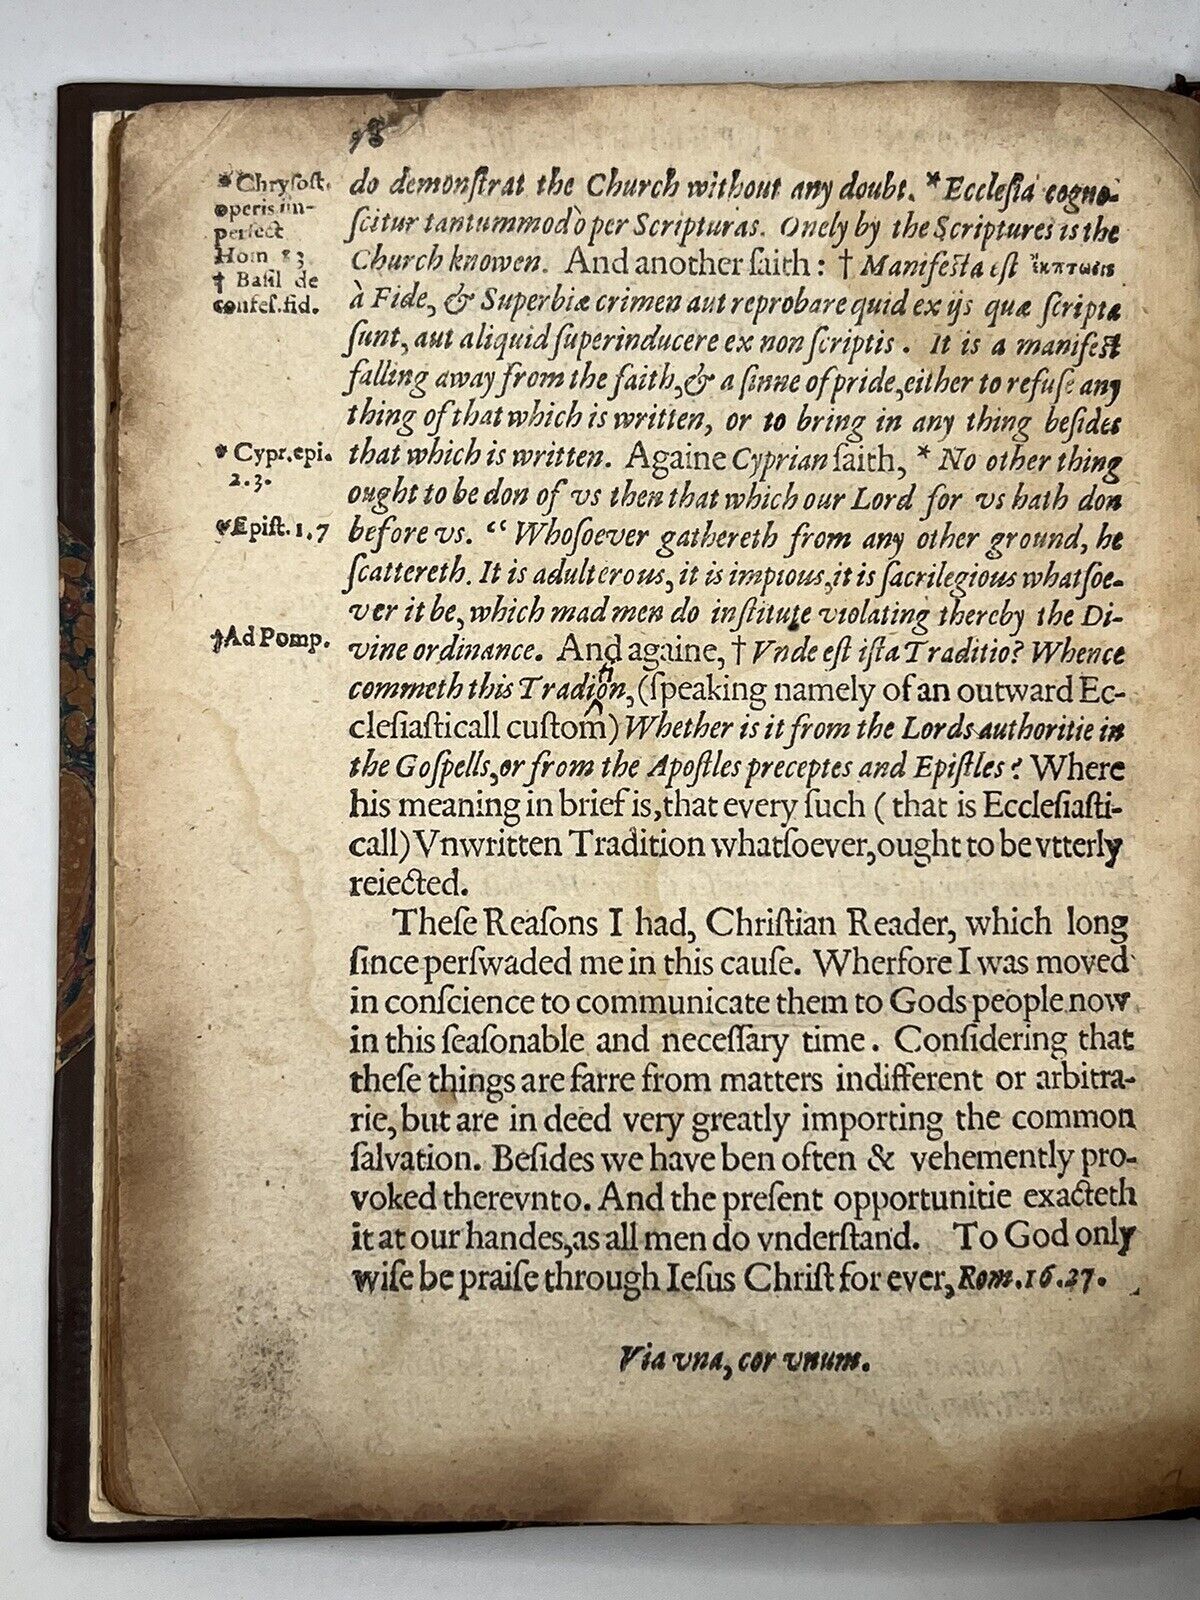 do demonſtrat the Church without any doubt. * Ecclesia cogno-
ſcitur tantummodò per Scripturas. Onely by the Scriptures is the
Church knowen. And another ſaith: † Manifeſta eſt ἔκπτωσις
à Fide, & Superbiæ crimen aut reprobare quid ex ijs quæ ſcripta
ſunt, aut aliquid ſuperinducere ex non ſcriptis. It is a manifeſt
falling away from the faith, & a ſinne of pride, either to refuſe any
thing of that which is written, or to bring in any thing beſides
that which is written. Againe Cyprian ſaith, * No other thing
ought to be don of vs then that which our Lord for vs hath don
before vs. “ Whoſoever gathereth from any other ground, he
ſcattereth. It is adulterous, it is impious, it is ſacrilegious whatſoe-
ver it be, which mad men do inſtitute violating thereby the Di-
vine ordinance. And againe, † Vnde eſt iſta Traditio? Whence
commeth this Tradion, (ſpeaking namely of an outward Ec-
cleſiaſticall cuſtom) Whether is it from the Lords authoritie in
the Goſpells, or from the Apoſtles preceptes and Epiſtles? Where
his meaning in brief is, that every ſuch (that is Eccleſiaſti-
call) Vnwritten Tradition whatſoever, ought to be vtterly
reiected.
Theſe Reaſons I had, Chriſtian Reader, which long
ſince perſwaded me in this cauſe. Wherfore I was moved
in conſcience to communicate them to Gods people now
in this ſeaſonable and neceſſary time. Conſidering that
theſe things are farre from matters indifferent or arbitra-
rie, but are in deed very greatly importing the common
ſalvation. Beſides we have ben often & vehemently pro-
voked therevnto. And the preſent opportunitie exacteth
it at our handes, as all men do vnderſtand. To God only
wiſe be praiſe through Ieſus Chriſt for ever, Rom. 16. 27.
Via vna, cor vnum.
* Chryſoſt.
operis im-
perfect
Hom 83
† Baſil de
confeſ. fid.
* Cypr. epi.
2. 3.
Epiſt. 1. 7
† Ad Pomp.